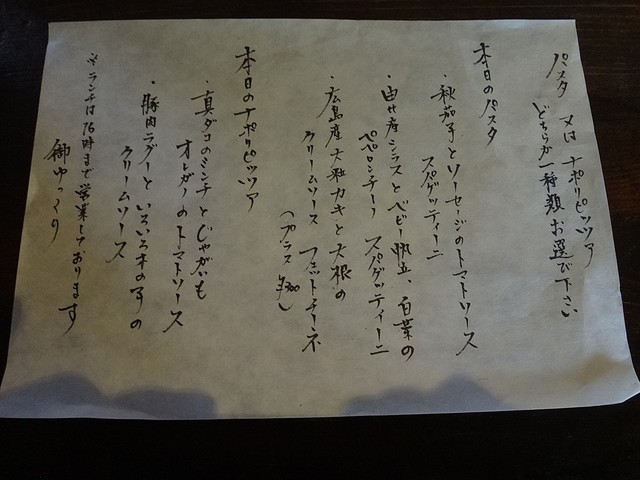 パスタ 又は ナポリピッツァ
どちらか一種類お選び下さい
本日のパスタ
・秋茄子とソーセージのトマトソース
スパゲッティーニ
・由比産シラスとベビー帆立、白菜の
ペペロンチーノ スパゲッティーニ
・広島産大粒カキと大根の
クリームソース フェットチーネ
(プラス ¥300)
本日のナポリピッツァ
・真ダコのミンチとじゃがいも
オレガノのトマトソース
・豚肉ラグーといろいろ木の子の
クリームソース
※ランチは16時まで営業しております
御ゆっくり